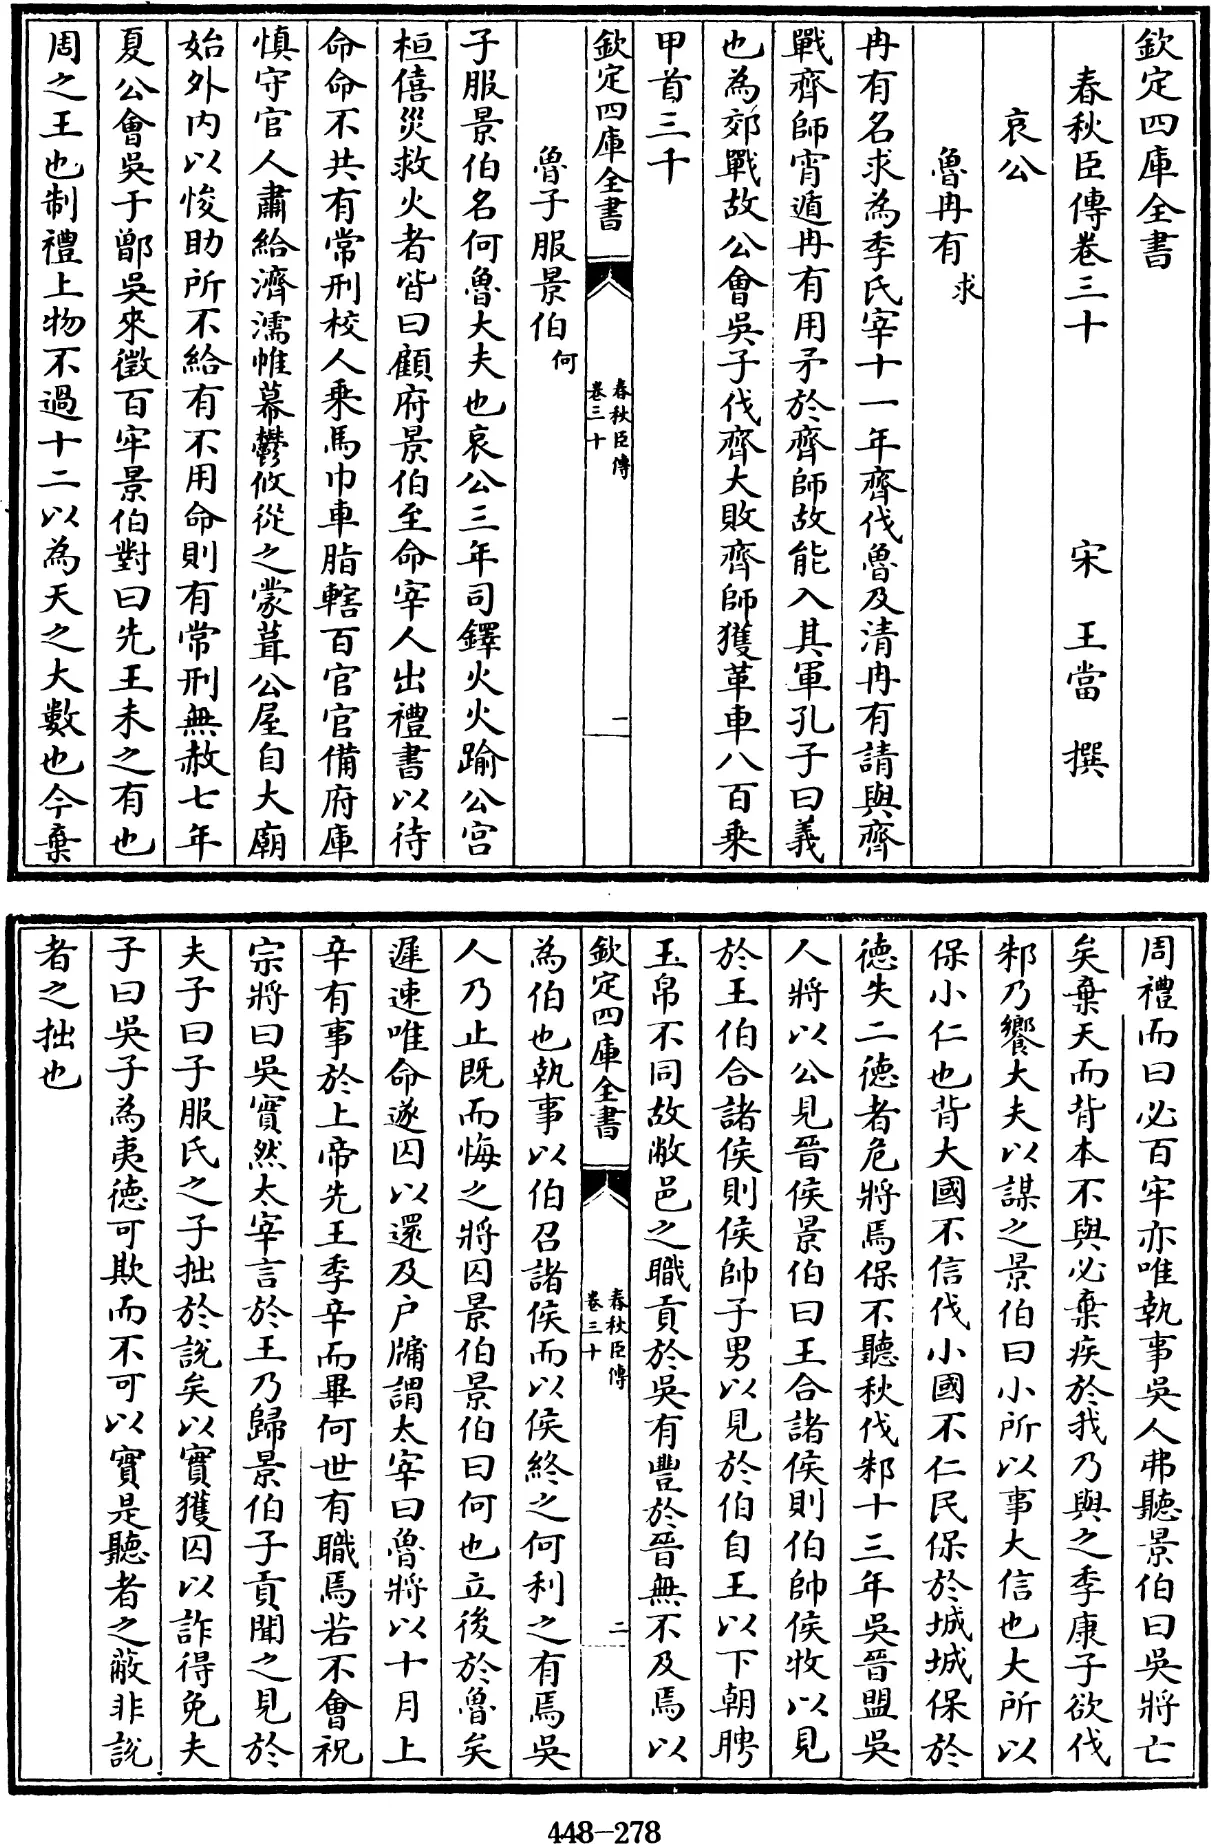 欽定四庫全書
春秋臣傳卷三十　宋　王當　撰
哀公
魯冉有求
冉有名求為季氏宰十一年齊伐魯及清冉有請與齊
戰齊師宵遁冉有用矛於齊師故能入其軍孔子曰義
也為郊戰故公會吳子伐齊大敗齊師獲革車八百乘
甲首三千
欽定四庫全書　春秋臣傳卷三十　一
魯子服景伯何
子服景伯名何魯大夫也哀公三年司鐸火火踰公宮
桓僖災救火者皆曰顧府景伯至命宰人出禮書以待
命命不共有常刑校人乘馬巾車脂轄百官官備府庫
慎守官人肅給濟濡帷幕鬱攸從之蒙葺公屋自大廟
始外內以悛助所不給有不用命則有常刑無赦七年
夏公會吳于鄫吳來徵百牢景伯對曰先王未之有也
周之王也制禮上物不過十二以為天之大數也今棄
周禮而曰必百牢亦唯執事吳人弗聽景伯曰吳將亡
矣棄天而背本不與必棄疾於我乃與之季康子欲伐
邾乃饗大夫以謀之景伯曰小所以事大信也大所以
保小仁也背大國不信伐小國不仁民保於城城保於
德失二德者危將焉保不聽秋伐邾十三年吳晉盟吳
人將以公見晉侯景伯曰王合諸侯則伯帥侯牧以見
於王伯合諸侯則侯帥子男以見於伯自王以下朝聘
玉帛不同故敝邑之職貢於吳有豐於晉無不及焉以
欽定四庫全書　春秋臣傳卷三十　二
為伯也執事以伯召諸侯而以侯終之何利之有焉吳
人乃止既而悔之將囚景伯景伯曰何也立後於魯矣
遲速唯命遂囚以還及户牖謂太宰曰魯將以十月上
辛有事於上帝先王季辛而畢何世有職焉若不會祝
宗將曰吳實然太宰言於王乃歸景伯子貢聞之見於
夫子曰子服氏之子拙於說矣以實獲囚以詐得免夫
子曰吳子為夷德可欺而不可以實是聽者之蔽非說
者之拙也
448-278